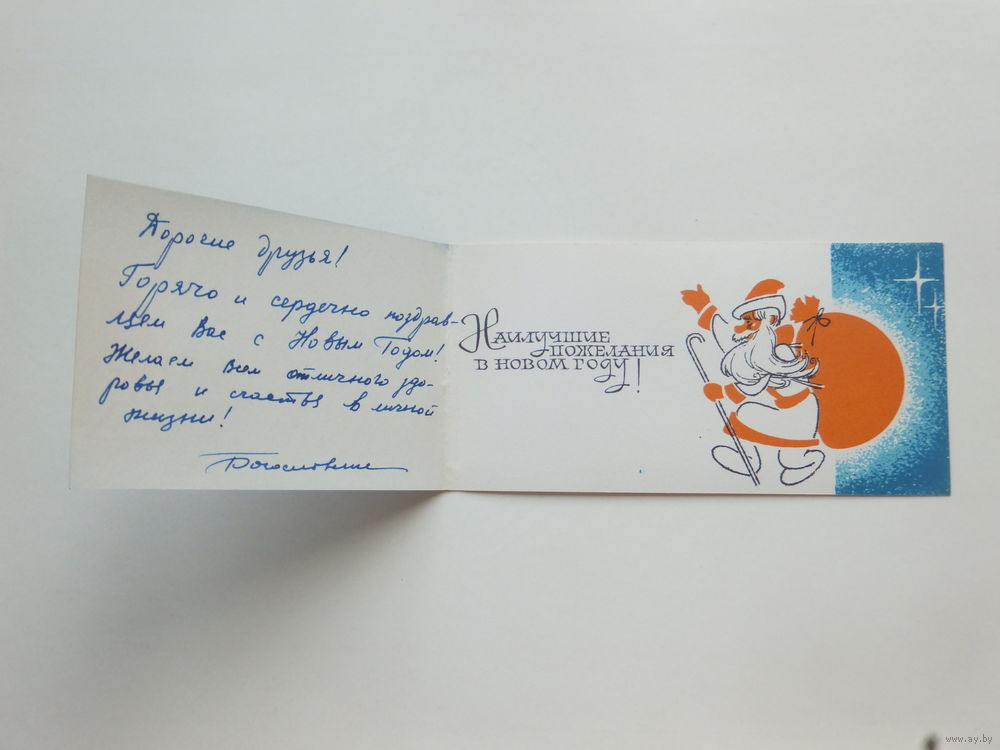 Дорогие друзья!
Горячо и сердечно поздрав-
ляем Вас с Новым Годом!
Желаем Вам отличного здо-
ровья и счастья в личной
жизни!
Богословские
Наилучшие
пожелания
в новом году!
www.ay.by